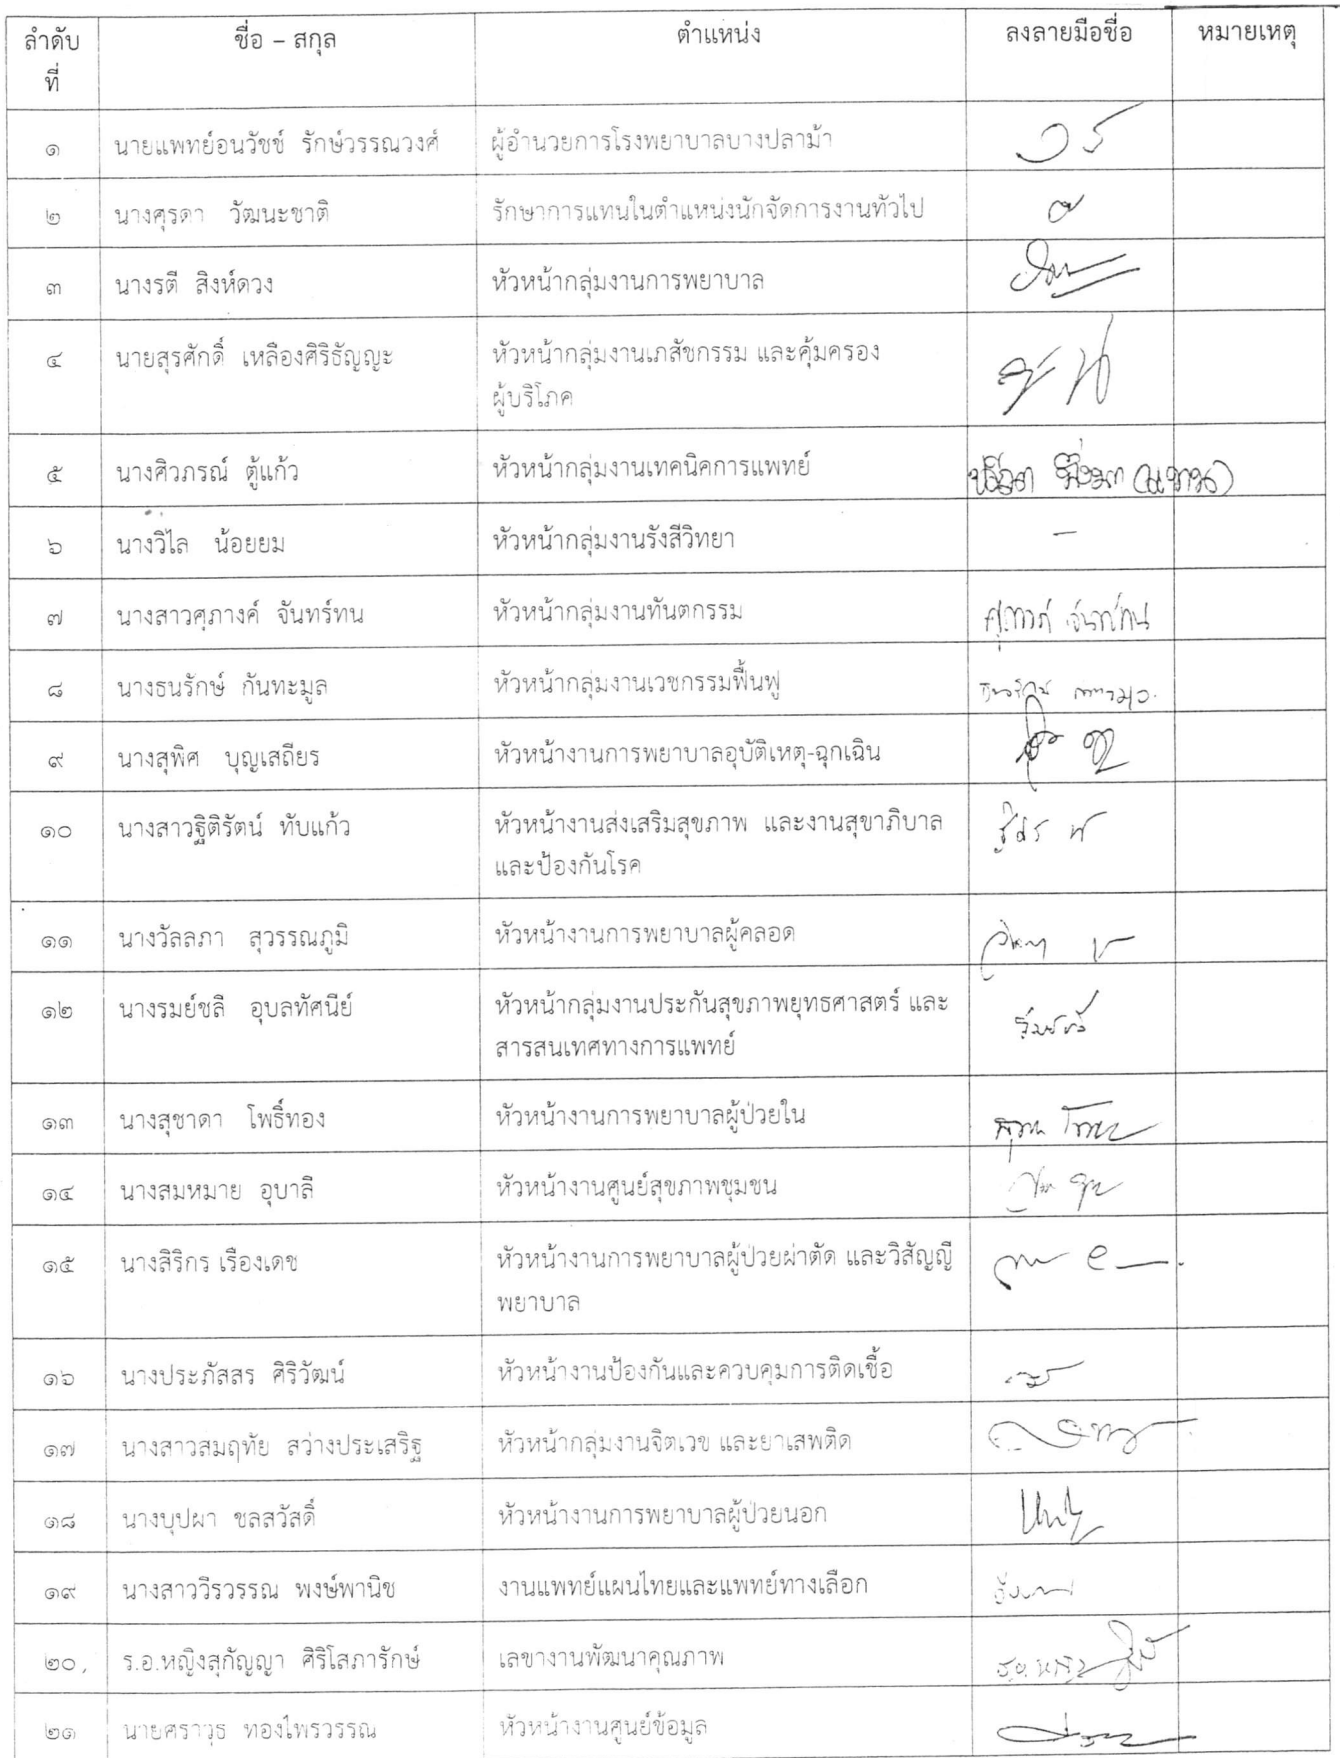 ลำดับ ชื่อ – สกุล ตำแหน่ง ลงลายมือชื่อ หมายเหตุ
ที่
๑ นายแพทย์อนวัชช์ รักษ์วรรณวงศ์ ผู้อำนวยการโรงพยาบาลบางปลาม้า
๒ นางศุรดา วัฒนะชาติ รักษาการแทนในตำแหน่งนักจัดการงานทั่วไป
๓ นางรตี สิงห์ดวง หัวหน้ากลุ่มงานการพยาบาล
๔ นายสุรศักดิ์ เหลืองศิริธัญญะ หัวหน้ากลุ่มงานเภสัชกรรม และคุ้มครอง
ผู้บริโภค
๕ นางศิวภรณ์ ตู้แก้ว หัวหน้ากลุ่มงานเทคนิคการแพทย์ (แทน)
๖ นางวิไล น้อยยม หัวหน้ากลุ่มงานรังสีวิทยา –
๗ นางสาวศุภางค์ จันทร์ทน หัวหน้ากลุ่มงานทันตกรรม
๘ นางธนรักษ์ กันทะมูล หัวหน้ากลุ่มงานเวชกรรมฟื้นฟู
๙ นางสุพิศ บุญเสถียร หัวหน้างานการพยาบาลอุบัติเหตุ-ฉุกเฉิน
๑๐ นางสาวฐิติรัตน์ ทับแก้ว หัวหน้างานส่งเสริมสุขภาพ และงานสุขาภิบาล
และป้องกันโรค
๑๑ นางวัลลภา สุวรรณภูมิ หัวหน้างานการพยาบาลผู้คลอด
๑๒ นางรมย์ชลี อุบลทัศนีย์ หัวหน้ากลุ่มงานประกันสุขภาพยุทธศาสตร์ และ
สารสนเทศทางการแพทย์
๑๓ นางสุชาดา โพธิ์ทอง หัวหน้างานการพยาบาลผู้ป่วยใน
๑๔ นางสมหมาย อุบาลี หัวหน้างานศูนย์สุขภาพชุมชน
๑๕ นางสิริกร เรืองเดช หัวหน้างานการพยาบาลผู้ป่วยผ่าตัด และวิสัญญี
พยาบาล
๑๖ นางประภัสสร ศิริวัฒน์ หัวหน้างานป้องกันและควบคุมการติดเชื้อ
๑๗ นางสาวสมฤทัย สว่างประเสริฐ หัวหน้ากลุ่มงานจิตเวช และยาเสพติด
๑๘ นางบุปผา ชลสวัสดิ์ หัวหน้างานการพยาบาลผู้ป่วยนอก
๑๙ นางสาววิรวรรณ พงษ์พานิช งานแพทย์แผนไทยและแพทย์ทางเลือก
๒๐ ร.อ.หญิงสุกัญญา ศิริโสภารักษ์ เลขางานพัฒนาคุณภาพ
๒๑ นายศราวุธ ทองไพรวรรณ หัวหน้างานศูนย์ข้อมูล